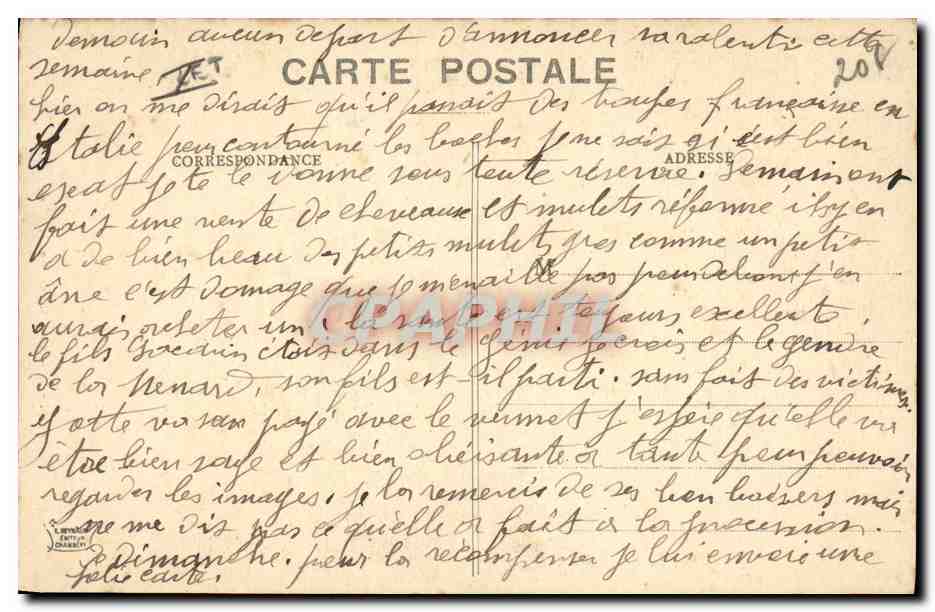 demain aucun depart d'annoncer sa ralenti cette
semaine
CARTE POSTALE
20
hier on me disait qu'il passait des troupes française en
Italie pour contourné les boches je ne sais si c'est bien
CORRESPONDANCE
ADRESSE
exeat je te le donne sous toute réserve. Demain ont
fait une vente de cheveaux et mulets réformé il y en
a de bien beau des petits mulets gros comme un petit
âne c'est domage que je m'enaille pas pour de bon j'en
aurais acheter un, la santé est toujours excellente
CPAPHIL
le fils Jordain étais dans le génie je crois et le gendre
de la Menard, son fils est-il parti. sam fait des victimes.
Yotte va san payé avec le vermet j'espère qu'elle va
être bien sage et bien obéisante a tante pour pouvoir
regarder les images. je la remercis de ses bon baisers mais
ne me dit pas ce qu'elle a fait a la procession.
ÉDITEUR
CHAMBÉRY
Dimanche. pour la récompenser je lui envoie une
jolie carte.